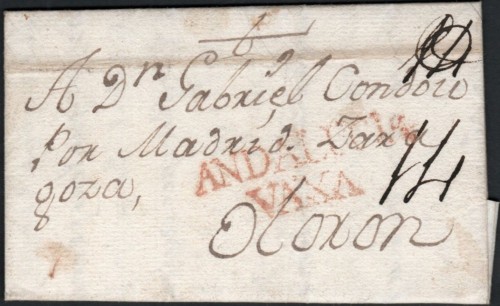 A Dn Gabriel Condou
Por Madrid. Zara
goza,
ANDALUCIA
VAXA
14
Oloron